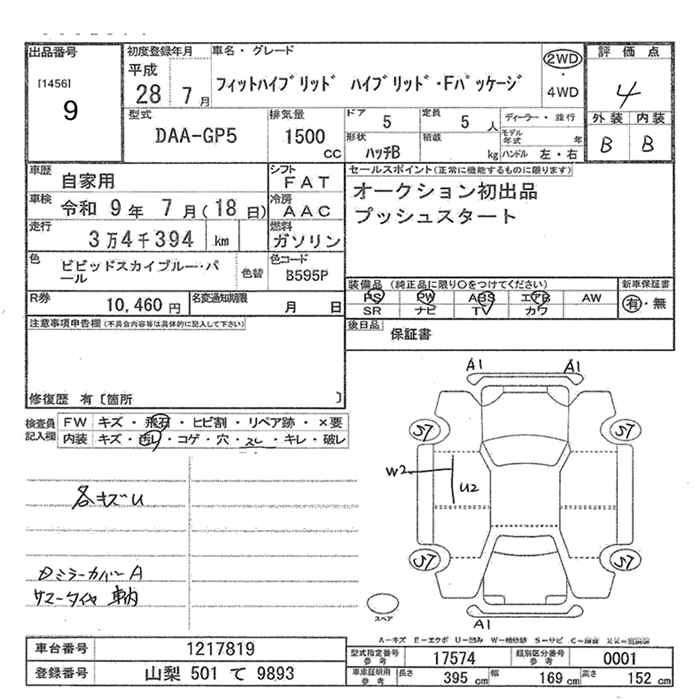 出品番号
[1456]
9
初度登録年月
平成
28 7月
車名・グレード
フィットハイブリッド ハイブリッド・Fパッケージ
2WD
・
4WD
評価点
4
外装 内装
B B
型式
DAA-GP5
排気量
1500
CC
ドア 5
定員 5 人
形状 ハッチB
積載 kg
ディーラー・並行
モデル年式 年
ハンドル 左・右
車歴 自家用
シフト FAT
車検 令和 9年 7月(18日)
冷房 AAC
走行 3万4千394 km
燃料 ガソリン
色 ビビッドスカイブルー・パール
色替
色コード B595P
R券 10,460円
名変通知期限 月 日
セールスポイント(正常に機能するものに限ります)
オークション初出品
プッシュスタート
装備品 (純正品に限り○をつけてください)
PS PW ABS エアB AW
SR ナビ TV カワ
新車保証書
有・無
後日品 保証書
注意事項申告欄(不具合内容等は具体的に記入して下さい)
修復歴 有〔箇所 〕
検査員記入欄
FW キズ・飛石・ヒビ割・リペア跡・×要
内装 キズ・汚レ・コゲ・穴・スレ・キレ・破レ
各キズU
ミラーカバーA
サマータイヤ 車内
A1 A1
S7 S7
W2
U2
S7 S7
A1
スペア
A-キズ E-エクボ U-凹み W-補修跡 S-サビ C-腐食
車台番号 1217819
登録番号 山梨 501 て 9893
型式指定番号 参考 17574
類別区分番号 参考 0001
車庫証明用 参考 長さ 395 cm 幅 169 cm 高さ 152 cm